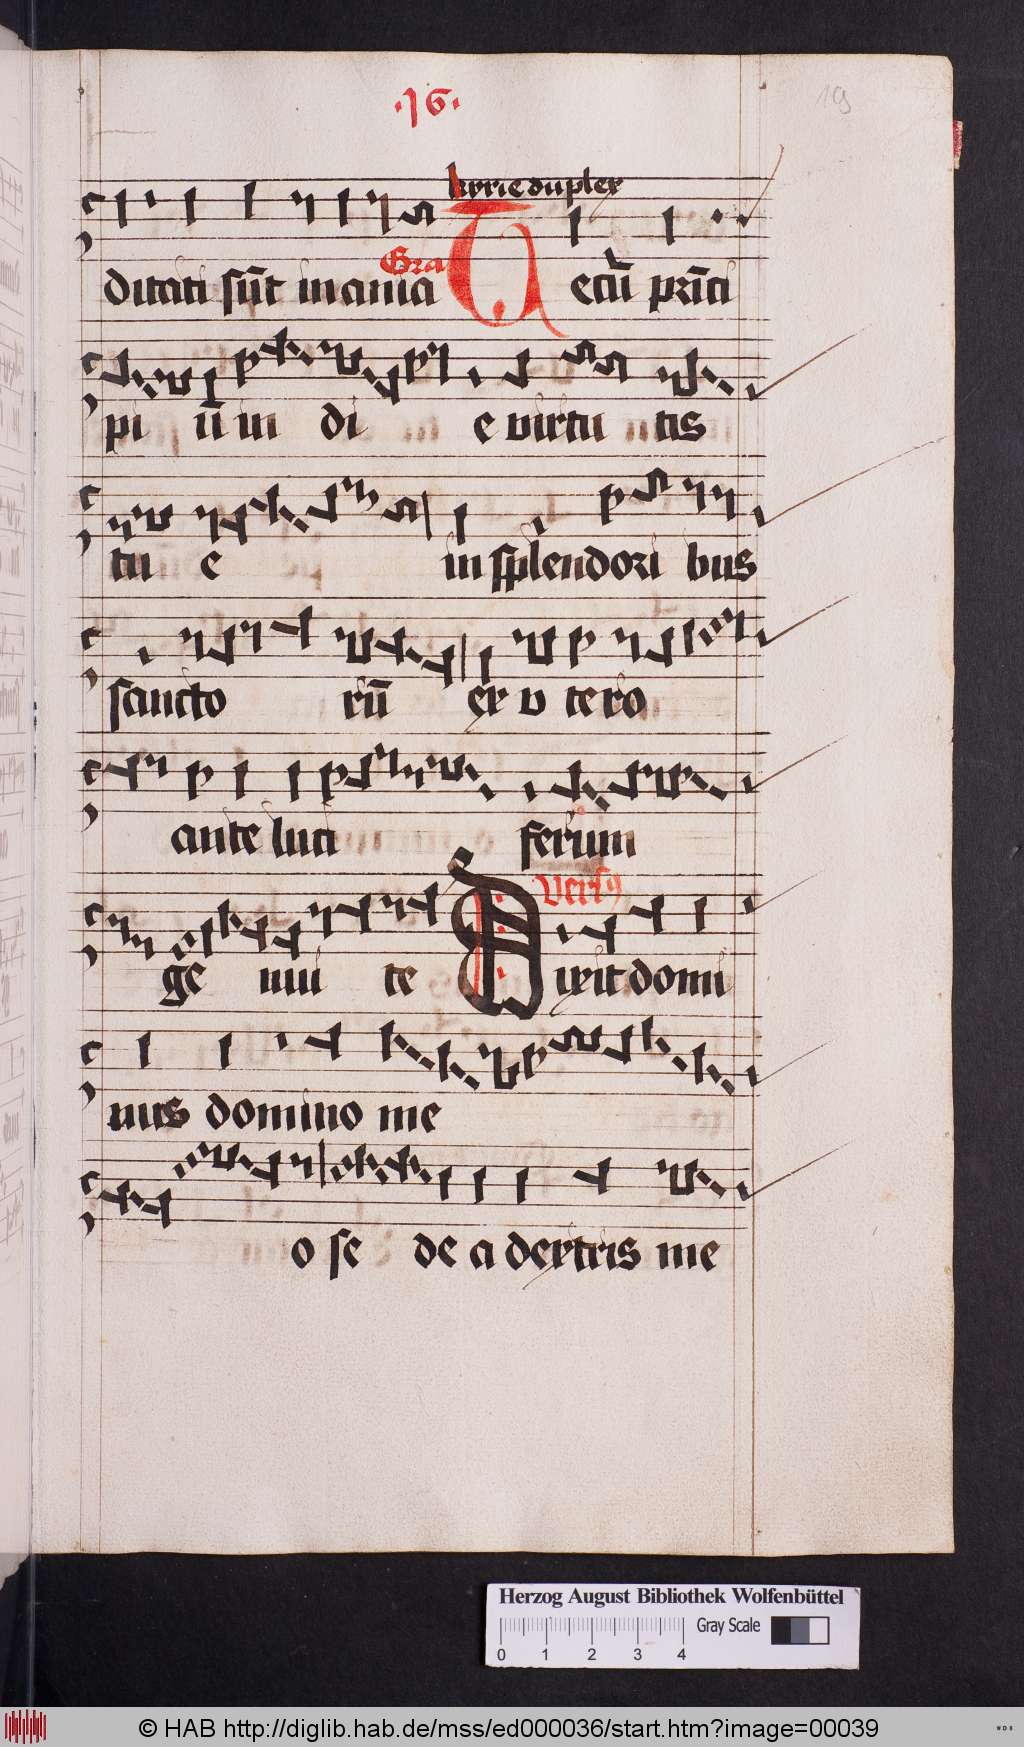 ·16·
19
kyrie duplex
ditati sūt inania Gra T ecū prīci
pi ū in di e virtu tis
tu e in splendori bus
sancto rū ex v te ro
ante luci ferum
Versꝰ
ge nui te D ixit domi
nus domino me
o se de a dextris me
Herzog August Bibliothek Wolfenbüttel
Gray Scale
0 1 2 3 4
© HAB http://diglib.hab.de/mss/ed000036/start.htm?image=00039